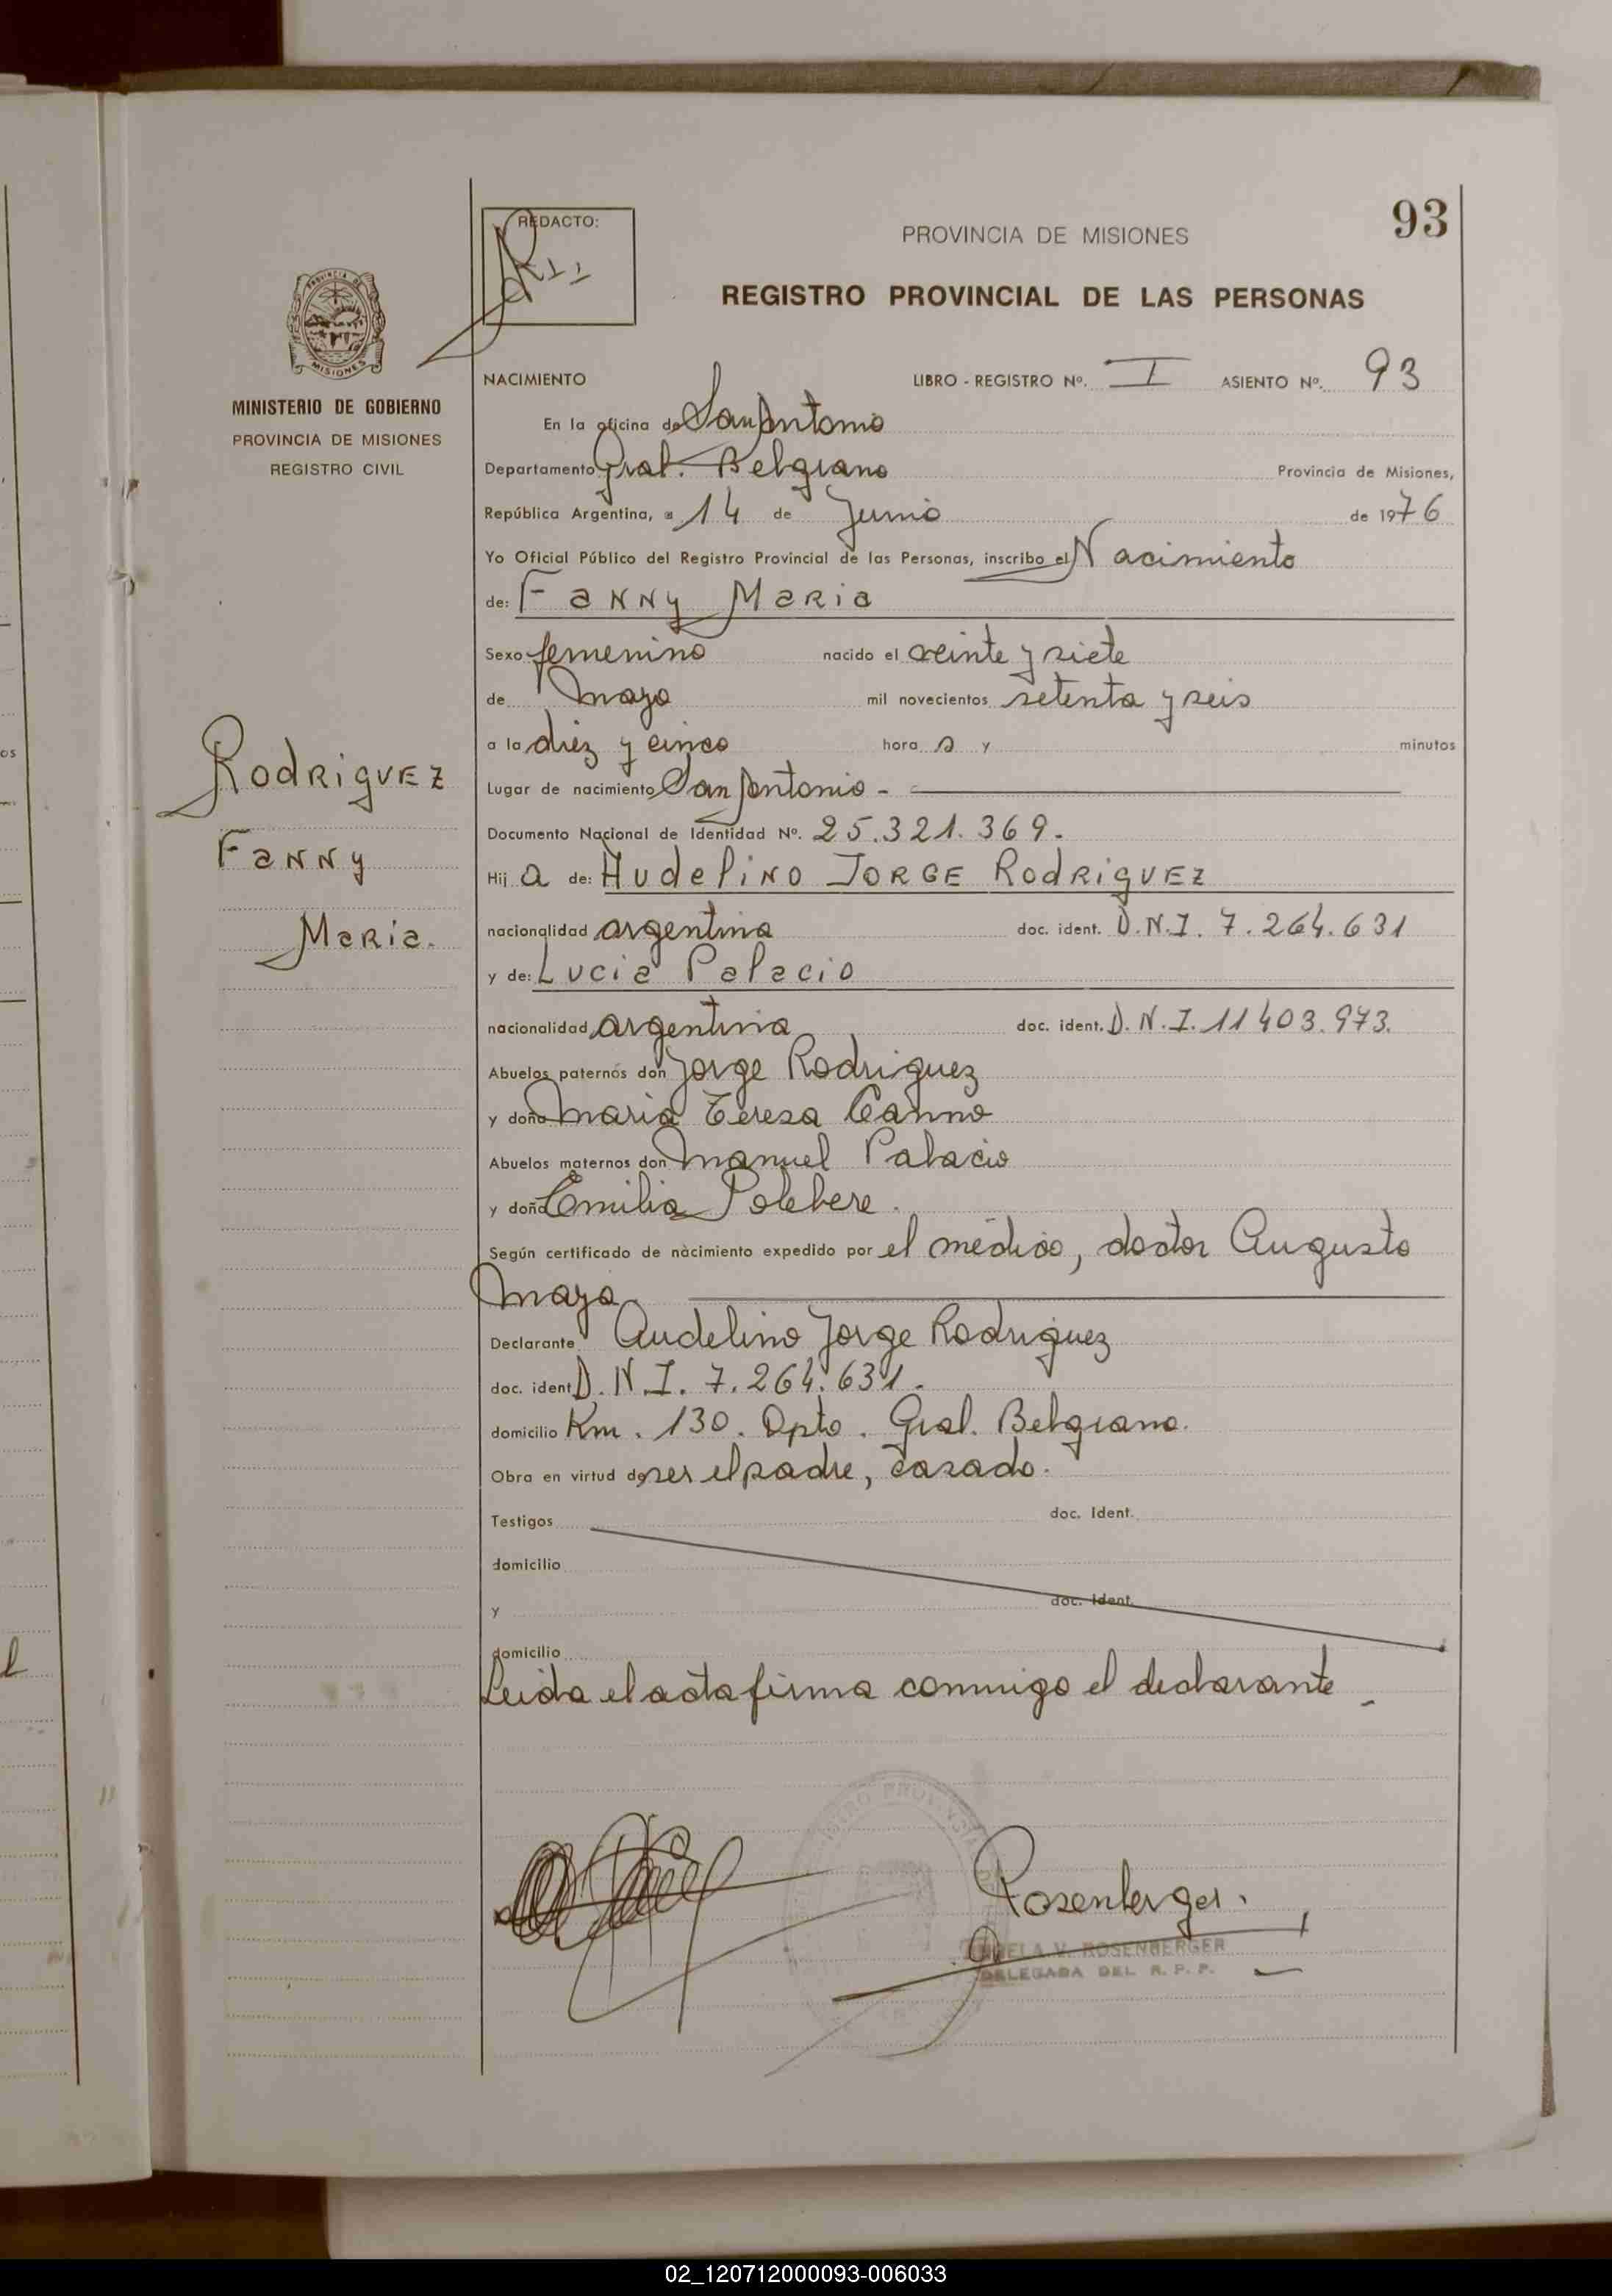 93
REDACTO:
PROVINCIA DE MISIONES
REGISTRO PROVINCIAL DE LAS PERSONAS
MINISTERIO DE GOBIERNO
PROVINCIA DE MISIONES
REGISTRO CIVIL
NACIMIENTO LIBRO - REGISTRO Nº. I ASIENTO Nº. 93
En la oficina de San Antonio
Departamento Gral. Belgrano Provincia de Misiones,
República Argentina, a 14 de Junio de 1976
Yo Oficial Público del Registro Provincial de las Personas, inscribo el Nacimiento
de: Fanny Maria
Sexo femenino nacido el veinte y siete
de Mayo mil novecientos setenta y seis
a la diez y cinco hora s y minutos
Lugar de nacimiento San Antonio -
Documento Nacional de Identidad Nº. 25.321.369.
Hij a de: Audelino Jorge Rodriguez
nacionalidad argentina doc. ident. D.N.I. 7.264.631
y de: Lucia Palacio
nacionalidad argentina doc. ident. D.N.I. 11403.973.
Abuelos paternos don Jorge Rodriguez
y doña Maria Teresa Canno
Abuelos maternos don Manuel Palacio
y doña Emilia
Según certificado de nacimiento expedido por el médico, doctor Augusto
Mayo
Declarante Audelino Jorge Rodriguez
doc. ident D.N.I. 7.264.631.
domicilio Km. 130. Dpto. Gral. Belgrano.
Obra en virtud de ser el padre, casado.
Testigos doc. ident.
domicilio
y doc. ident.
domicilio
Leida el acta firma conmigo el declarante -
Rodriguez
Fanny
Maria.
Rosenberger.
V. ROSENBERGER
DELEGADA DEL R. P. P.
02_120712000093-006033